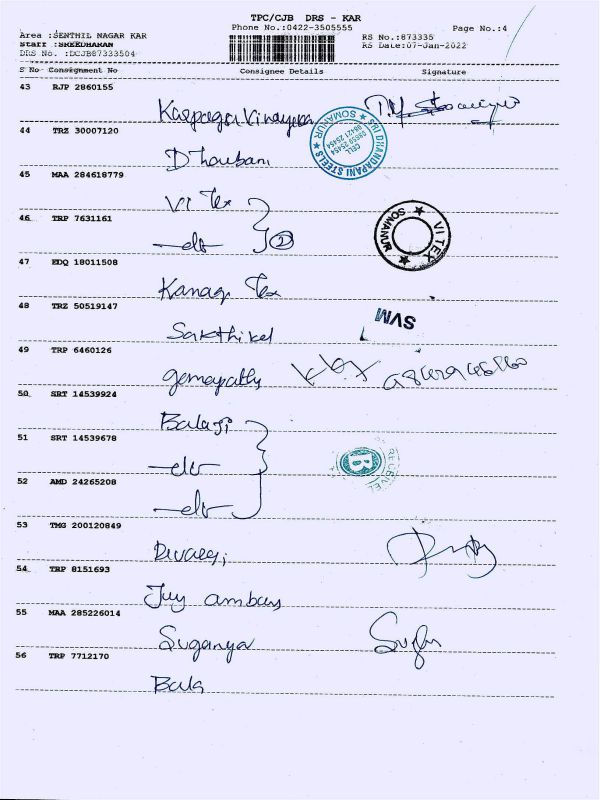 TPC/CJB DRS - KAR
Phone No.:0422-3505555
Page No.:4
Area :SENTHIL NAGAR KAR
Staff :SREEDHARAN
DRS No. :DCJB87333504
RS No.:873335
RS Date:07-Jan-2022
S No Consignment No Consignee Details Signature
43 RJP 2860155
Vinayaga
44 TRZ 30007120
SRI DHANDAPANI STEELS
SOMANUR
CELL
Dhanbani
45 MAA 284618779
VI Tex
46 TRP 7631161
-do- 2
VI TEX
SOMANUR
47 EDQ 18011508
Kanagi Tex
48 TRZ 50519147
SVM
Sakthivel
49 TRP 6460126
50 SRT 14539924
Balaji
51 SRT 14539678
-do-
B
52 AMD 24265208
-do-
53 TMG 200120849
54 TRP 8151693
55 MAA 285226014
Suganya
56 TRP 7712170
Bala